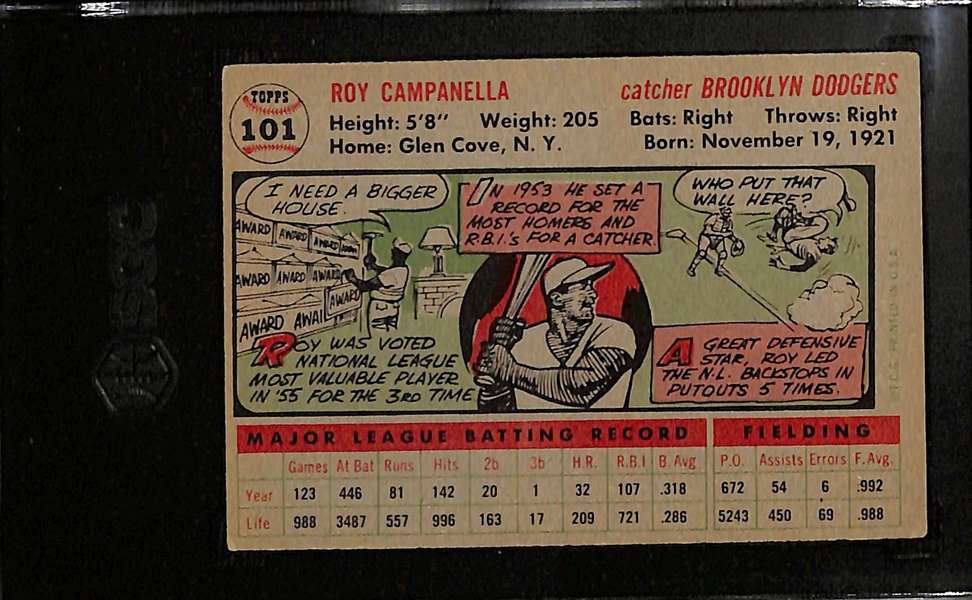 TOPPS
101
ROY CAMPANELLA
catcher BROOKLYN DODGERS
Height: 5'8" Weight: 205 Bats: Right Throws: Right
Home: Glen Cove, N. Y. Born: November 19, 1921
I NEED A BIGGER
HOUSE.
AWARD AWARD AWARD AWARD
AWARD AWARD AWARD
AWARD
AWARD AWAI
ROY WAS VOTED
NATIONAL LEAGUE
MOST VALUABLE PLAYER
IN '55 FOR THE 3RD TIME
IN 1953 HE SET A
RECORD FOR THE
MOST HOMERS AND
R.B.I.'s FOR A CATCHER.
WHO PUT THAT
WALL HERE?
A GREAT DEFENSIVE
STAR, ROY LED
THE N.L. BACKSTOPS IN
PUTOUTS 5 TIMES.
© T.C.G. PRINTED IN U.S.A.
MAJOR LEAGUE BATTING RECORD FIELDING
Games At Bat Runs Hits 2b 3b H.R. R.B.I B. Avg P.O. Assists Errors F.Avg.
Year 123 446 81 142 20 1 32 107 .318 672 54 6 .992
Life 988 3487 557 996 163 17 209 721 .286 5243 450 69 .988
SGC